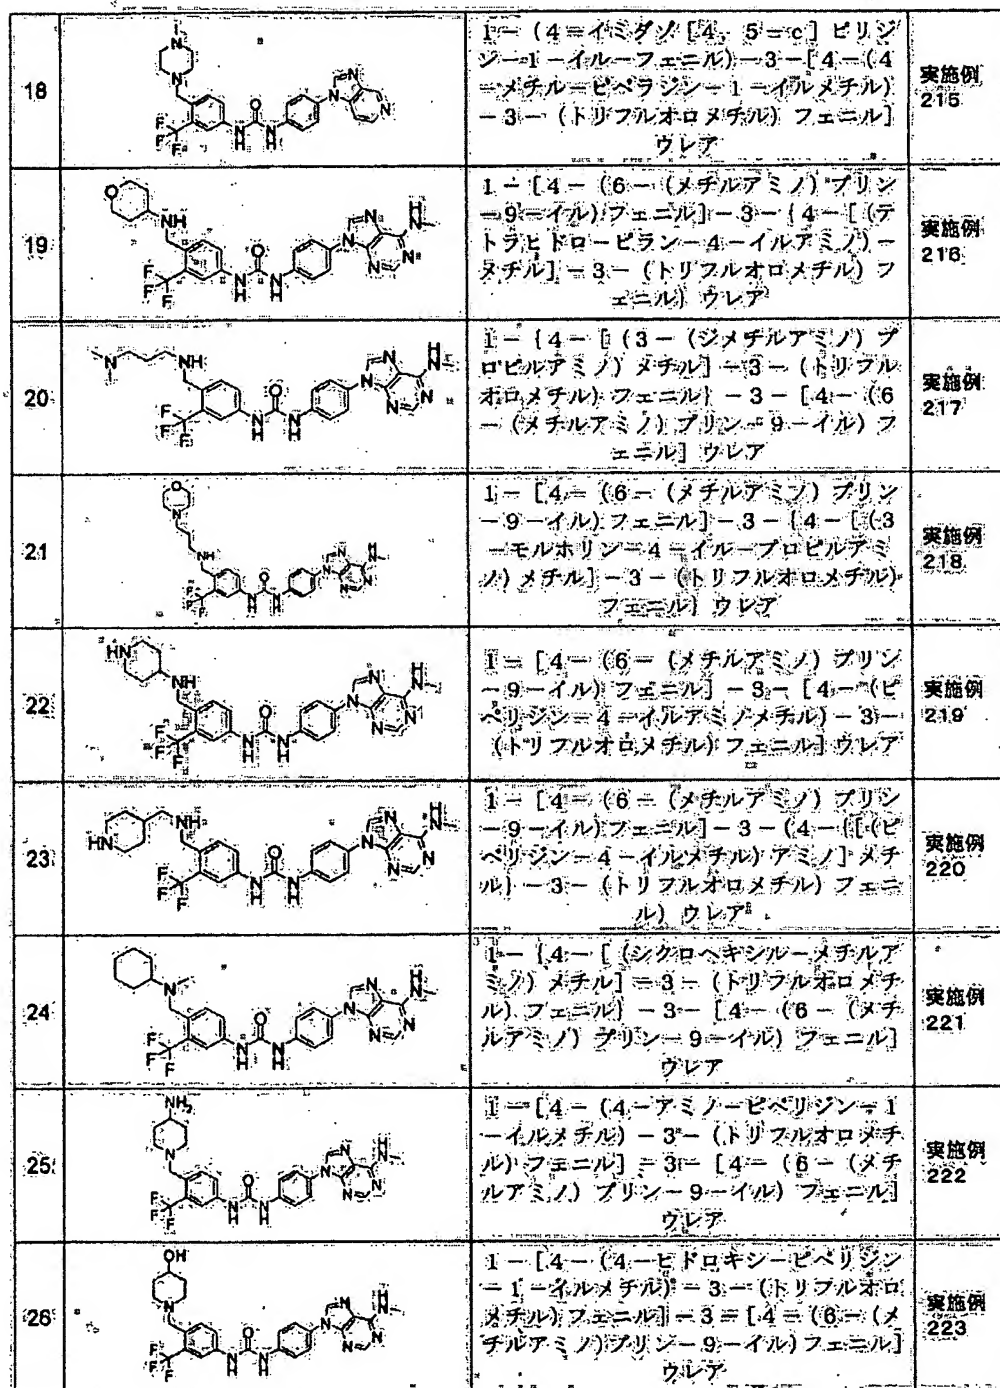 18
1-(4-イミダゾ[4,5-c]ピリジ
ン-1-イル-フェニル)-3-[4-(4
-メチル-ピペラジン-1-イルメチル)
-3-(トリフルオロメチル)フェニル]
ウレア
実施例
215
19
1-[4-(6-(メチルアミノ)プリン
-9-イル)フェニル]-3-{4-[(テ
トラヒドロ-ピラン-4-イルアミノ)-
メチル]-3-(トリフルオロメチル)フ
ェニル}ウレア
実施例
216
20
1-{4-[(3-(ジメチルアミノ)プ
ロピルアミノ)メチル]-3-(トリフル
オロメチル)フェニル}-3-[4-(6
-(メチルアミノ)プリン-9-イル)フ
ェニル]ウレア
実施例
217
21
1-[4-(6-(メチルアミノ)プリン
-9-イル)フェニル]-3-{4-[(3
-モルホリン-4-イル-プロピルアミ
ノ)メチル]-3-(トリフルオロメチル)
フェニル}ウレア
実施例
218
22
1-[4-(6-(メチルアミノ)プリン
-9-イル)フェニル]-3-[4-(ピ
ペリジン-4-イルアミノメチル)-3-
(トリフルオロメチル)フェニル]ウレア
実施例
219
23
1-[4-(6-(メチルアミノ)プリン
-9-イル)フェニル]-3-(4-{[(ピ
ペリジン-4-イルメチル)アミノ]メチ
ル}-3-(トリフルオロメチル)フェニ
ル)ウレア
実施例
220
24
1-{4-[(シクロヘキシル-メチルア
ミノ)メチル]-3-(トリフルオロメチ
ル)フェニル}-3-[4-(6-(メチ
ルアミノ)プリン-9-イル)フェニル]
ウレア
実施例
221
25
1-[4-(4-アミノ-ピペリジン-1
-イルメチル)-3-(トリフルオロメチ
ル)フェニル]-3-[4-(6-(メチ
ルアミノ)プリン-9-イル)フェニル]
ウレア
実施例
222
26
1-[4-(4-ヒドロキシ-ピペリジン
-1-イルメチル)-3-(トリフルオロ
メチル)フェニル]-3-[4-(6-(メ
チルアミノ)プリン-9-イル)フェニル]
ウレア
実施例
223